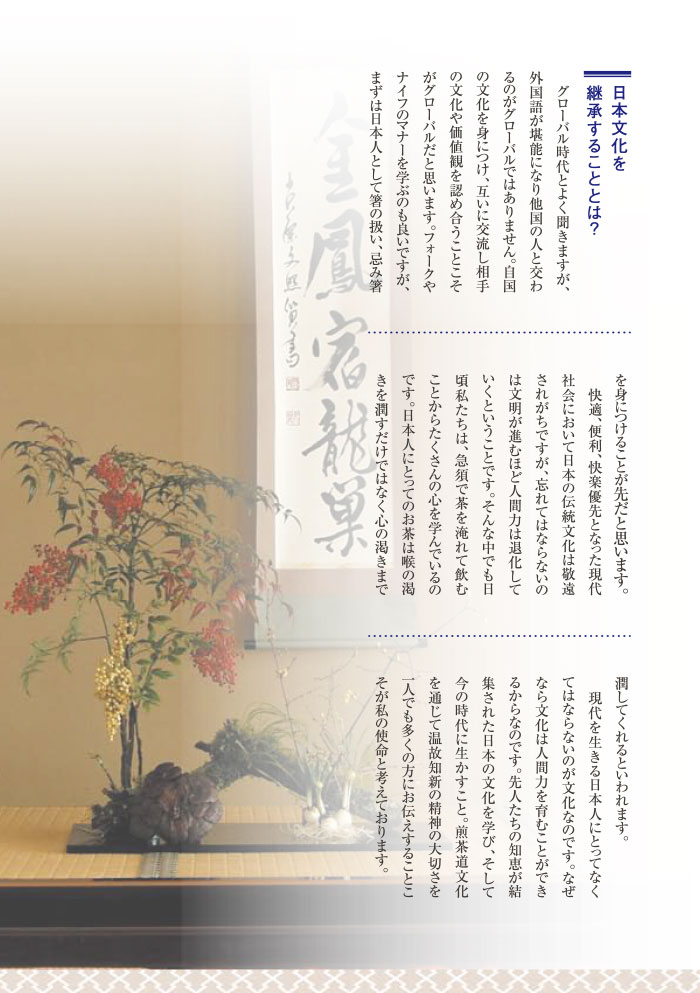 日本文化を
継承することとは？
グローバル時代とよく聞きますが、
外国語が堪能になり他国の人と交わ
るのがグローバルではありません。自国
の文化を身につけ、互いに交流し相手
の文化や価値観を認め合うことこそ
がグローバルだと思います。フォークや
ナイフのマナーを学ぶのも良いですが、
まずは日本人として箸の扱い、忌み箸
を身につけることが先だと思います。
快適、便利、快楽優先となった現代
社会において日本の伝統文化は敬遠
されがちですが、忘れてはならないの
は文明が進むほど人間力は退化して
いくということです。そんな中でも日
頃私たちは、急須で茶を淹れて飲む
ことからたくさんの心を学んでいるの
です。日本人にとってのお茶は喉の渇
きを潤すだけではなく心の渇きまで
潤してくれるといわれます。
現代を生きる日本人にとってなく
てはならないのが文化なのです。なぜ
なら文化は人間力を育むことができ
るからなのです。先人たちの知恵が結
集された日本の文化を学び、そして
今の時代に生かすこと。煎茶道文化
を通じて温故知新の精神の大切さを
一人でも多くの方にお伝えすることこ
そが私の使命と考えております。
金鳳宿龍巣